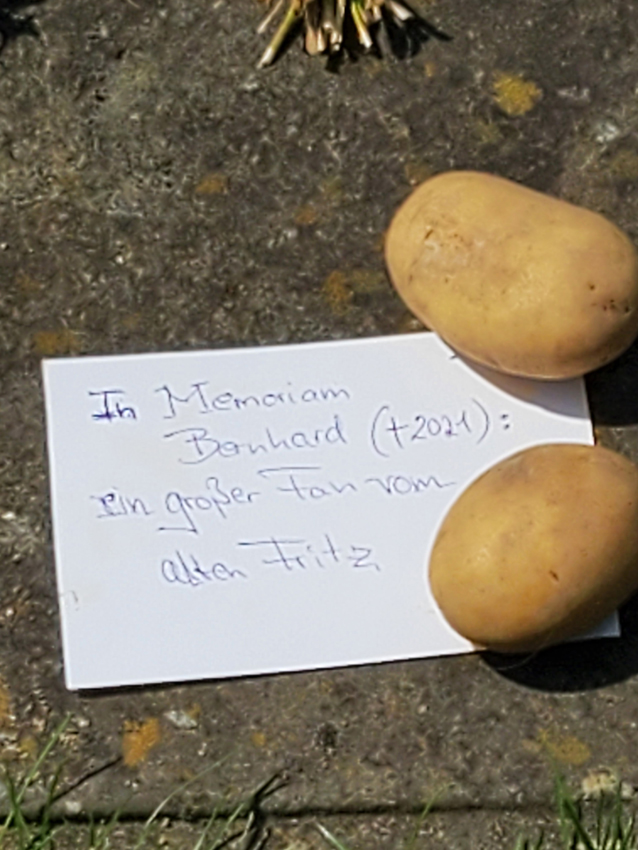 In Memoriam
Bernhard (†2021):
ein großer Fan vom
alten Fritz